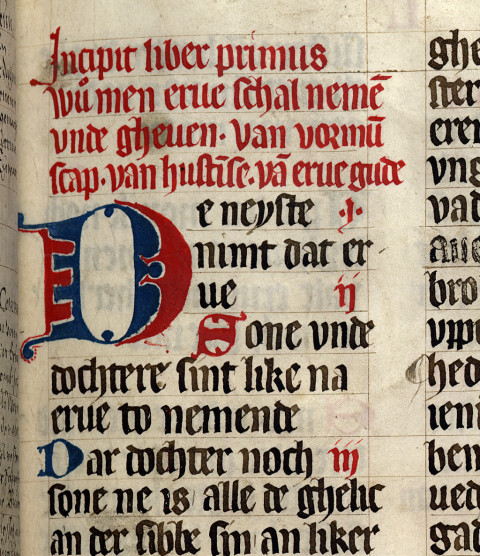 Incipit liber primus
wů men erue schal nemē
vnde gheuen· van vormū
scap· van hustinse· vā erue gude
De neyste ·i·
nimt dat er
ue ij
Sone vnde
dochtere sint like na
erue to nemende
Dar dochter noch iij
sone ne is alle de ghelic
an der sibbe sin an liker
ghe
ster
eren
vng
vad
bro
vpp
hed
ieni
ben
ued
gad